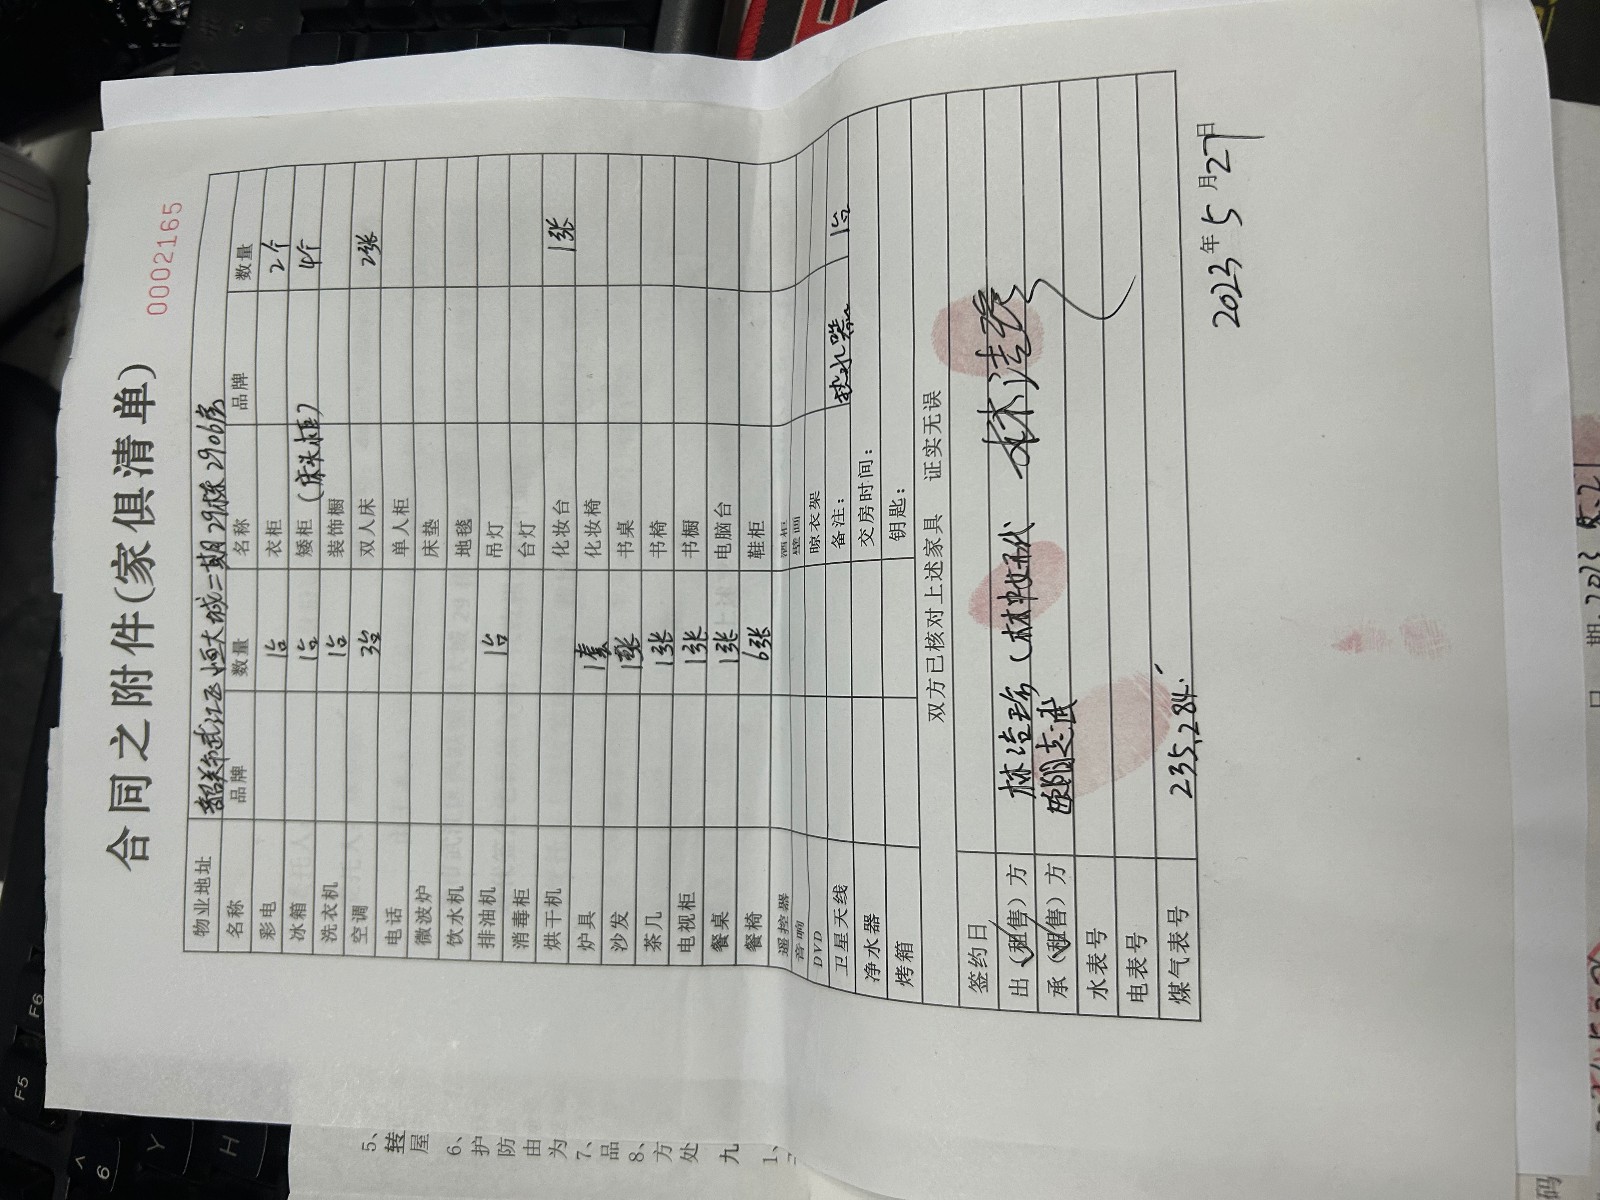 合同之附件(家俱清单)
0002165
物业地址 韶关市武江区恒大城二期29栋2906房
名称 品牌 数量 名称 品牌 数量
彩电 1台 衣柜 2个
冰箱 1台 矮柜 (床头柜) 4个
洗衣机 1台 装饰橱
空调 3台 双人床 2张
电话 单人柜
微波炉 床垫
饮水机 地毯
排油机 1台 吊灯
消毒柜 台灯
烘干机 化妆台 1张
炉具 1套 化妆椅
沙发 1张 书桌
茶几 1张 书椅
电视柜 1张 书橱
餐桌 1张 电脑台
餐椅 6张 鞋柜
遥控器 酒柜
音响 壁画
DVD 晾衣架
卫星天线 备注: 热水器 1台
净水器 交房时间:
烤箱 钥匙:
双方已核对上述家具 证实无误
签约日
出(租售)方
承(租售)方 志武
水表号
电表号
煤气表号 235,284.
2023年5月27日
5、
转
屋
6、
护
防
由
为
7、
品
8、
方
处
九
1、
F5
F6
6
Y
H
码